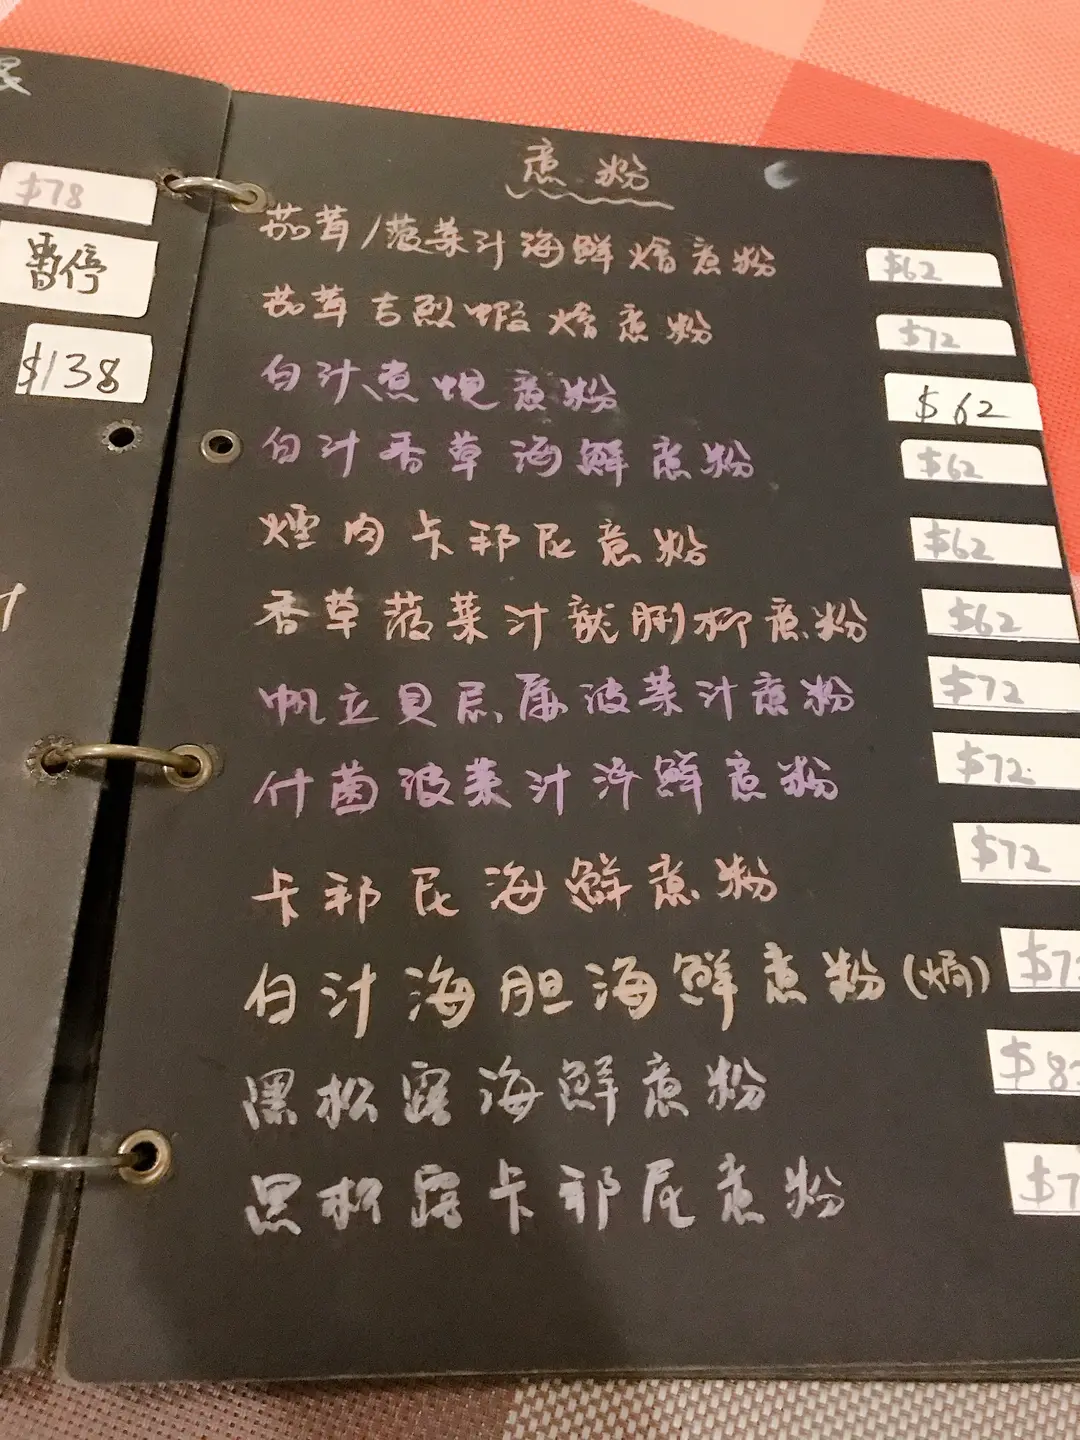 $78
暫停
$138
意粉
茄茸/菠菜汁海鮮燴意粉 $62
茄茸吉烈蝦燴意粉 $72
白汁煮蜆意粉 $62
白汁香草海鮮意粉 $62
煙肉卡邦尼意粉 $62
香草菠菜汁龍脷柳意粉 $62
帆立貝忌廉波菜汁意粉 $72
什菌波菜汁海鮮意粉 $72
卡邦尼海鮮意粉 $72
白汁海胆海鮮意粉(焗)
黑松露海鮮意粉
黑松露卡邦尼意粉